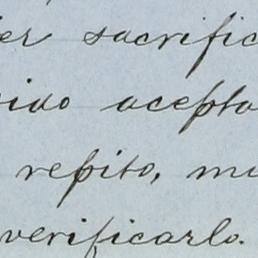 er sacrific
ido acepta
repito, mu
verificarlo.